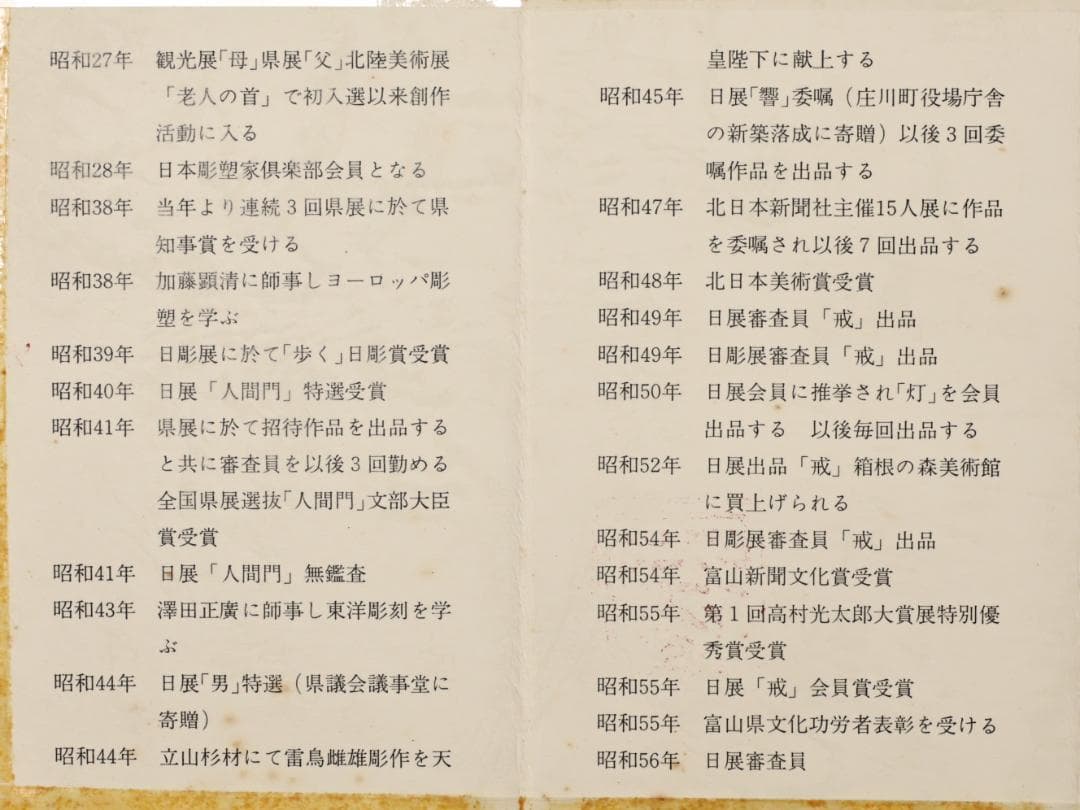 昭和27年 観光展「母」県展「父」北陸美術展
「老人の首」で初入選以来創作
活動に入る
昭和28年 日本彫塑家倶楽部会員となる
昭和38年 当年より連続3回県展に於て県
知事賞を受ける
昭和38年 加藤顕清に師事しヨーロッパ彫
塑を学ぶ
昭和39年 日彫展に於て「歩く」日彫賞受賞
昭和40年 日展「人間門」特選受賞
昭和41年 県展に於て招待作品を出品する
と共に審査員を以後3回勤める
全国県展選抜「人間門」文部大臣
賞受賞
昭和41年 日展「人間門」無鑑査
昭和43年 澤田正廣に師事し東洋彫刻を学
ぶ
昭和44年 日展「男」特選（県議会議事堂に
寄贈）
昭和44年 立山杉材にて雷鳥雌雄彫作を天
皇陛下に献上する
昭和45年 日展「響」委嘱（庄川町役場庁舎
の新築落成に寄贈）以後3回委
嘱作品を出品する
昭和47年 北日本新聞社主催15人展に作品
を委嘱され以後7回出品する
昭和48年 北日本美術賞受賞
昭和49年 日展審査員「戒」出品
昭和49年 日彫展審査員「戒」出品
昭和50年 日展会員に推挙され「灯」を会員
出品する　以後毎回出品する
昭和52年 日展出品「戒」箱根の森美術館
に買上げられる
昭和54年 日彫展審査員「戒」出品
昭和54年 富山新聞文化賞受賞
昭和55年 第1回高村光太郎大賞展特別優
秀賞受賞
昭和55年 日展「戒」会員賞受賞
昭和55年 富山県文化功労者表彰を受ける
昭和56年 日展審査員